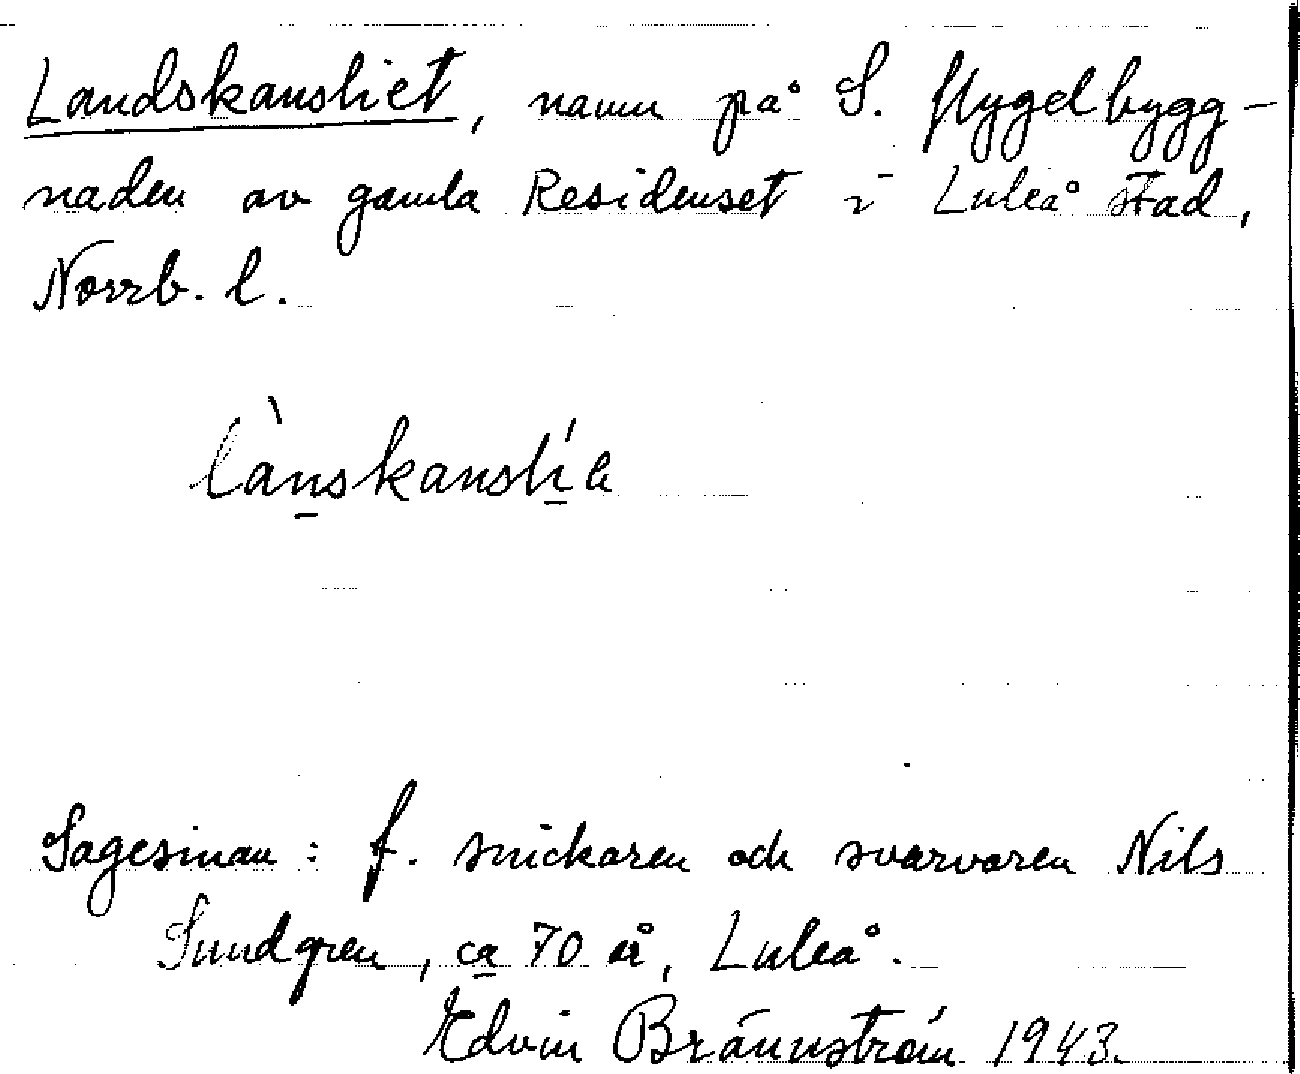 Landskansliet, namn på S. flygelbygg-
naden av gamla Residenset i Luleå stad,
Norrb. l.
lànskanslíe
Sagesman: f. snickaren och svarvaren Nils
Sundgren, ca 70 år, Luleå.
Edvin Brännström 1943.